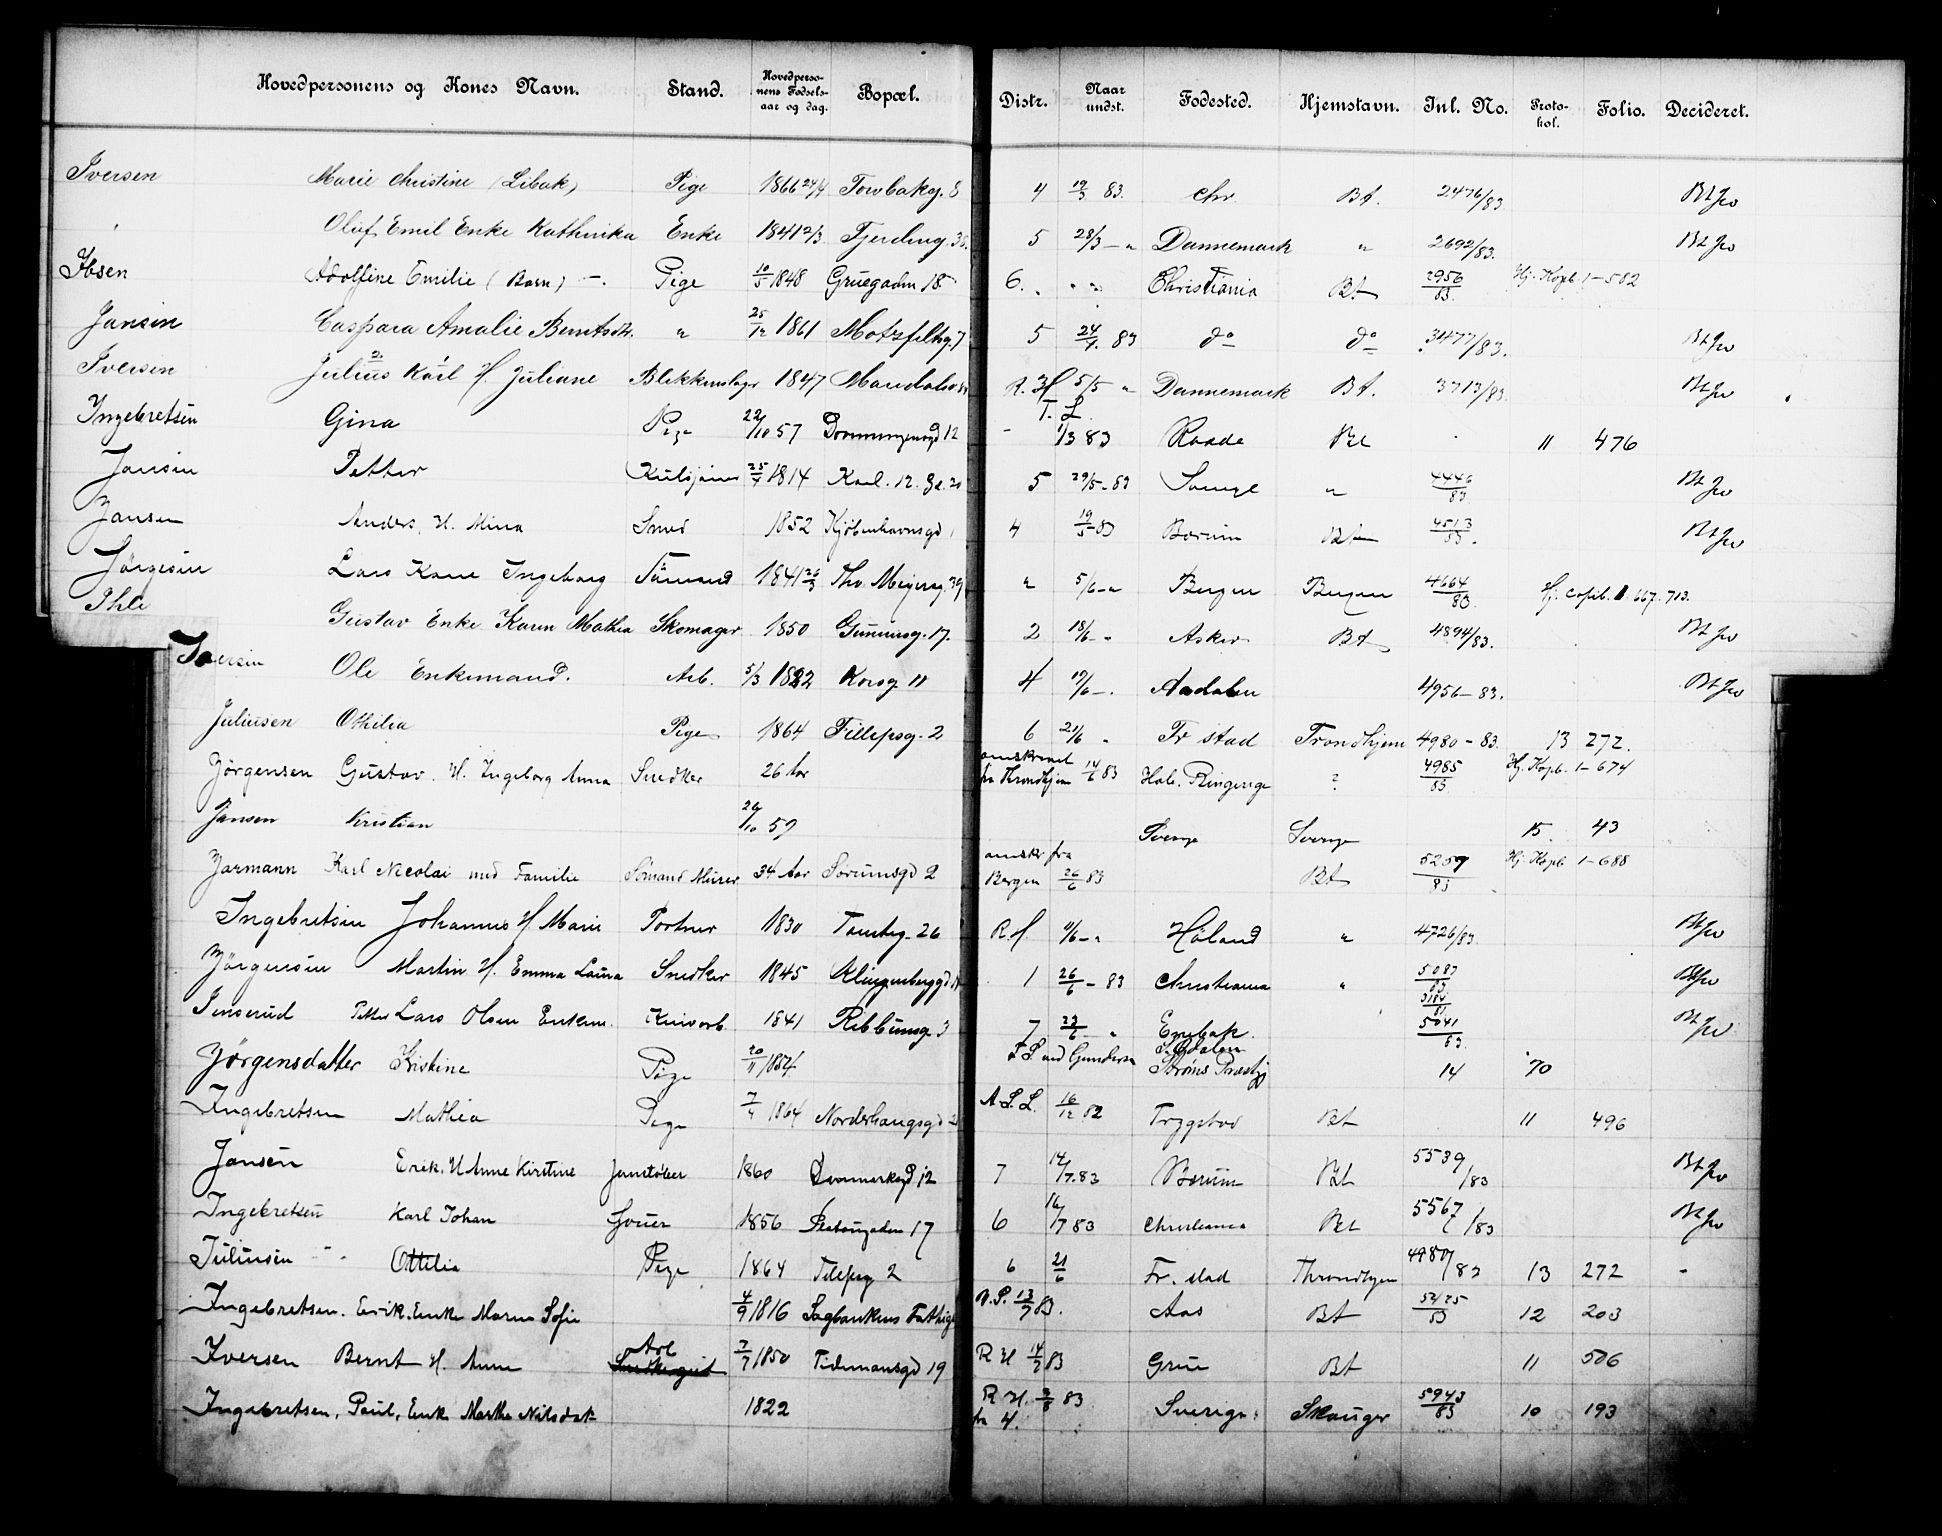 Hovedpersonens og Kones Navn. Stand. Hovedpersonens Fødselsaar og dag. Bopæl. Distr. Naar undst. Fødested. Hjemstavn. Inl. No. Protokol. Folio. Decideret.
Iversen Marie Christine (Libak) Pige 1866 24/4 4 19/3 83. Chr Bt. 2476/83 Bt
" Oluf Emil Enke Kathinka Enke 1841 Fjerding. 5 28/3 - " Dannemark " 2692/83. Bt
Ibsen Adolfine Emilie (Barn) Pige 10/5 1848 Gruegaden 18 6. " " Christiania Bt 2956/83 Hj. Kopb. 1-582
Jansen Caspara Amalie Berntsdtr. " 25/12 1861 Motzfeltsg. 7 5 24/4. 83 do do 3477/83. Bt
Iversen Julius Karl H. Juliane Blikkenslager 1847 R. H 5/5 " Dannemark Bt. 3713/83 Bt
Ingebretsen Gina Pige 22/10 57 Dronningensgd 12 T. L. 83 Raade Bt 11 476
Jansen Petter 25/4 1814 Karl. 12. 5 29/5-83 Sverige " 4446/83 Bt
Jansen Anders, H. Mina Smed 1852 Kjöbenhavnsgd 4 19/5 83 Bærum Bt 4513/83. Bt
Jörgesen Lars Kone Ingeborg Sömand 1841 26/3 Thv. Meyersg. 39 " 5/6 - " Bergen Bergen 4664/83. Hj. Copib. 1 667. 713.
Ihle Gustav Enke Karen Mathea Skomager 1850 2 18/6 - " Asker Bt 4894/83. Bt
Iversen Ole Enkemand. Arb. 5/3 1822 Korsg 11 4 19/6 -. Aadalen 4956-83. Bt
Juliusen Othilia Pige 1864 Fillepsg. 2 6 21/6 " Fr stad Trondhjem 4980-83. 13 272.
Jörgensen Gustav. H. Ingeborg Anna Snedker 26 Aar önskrevet fra Throndhjem 14/6 83 Hole. Ringerige ? 4985/83 Hj. Kopb. 1-674
Jansen Kristian 26/10 59 Sverge Sverge 15 43
Jarmann Karl Nicolai med Familie Sömand Murer 34 Aar Sorumsgd 2 omskr fra Bergen 26/6 83 Bt 5259/83 Hj. Kopb 1-688
Ingebretsen Johannes H. Marie Portner 1830 Tomteg. 26 R. H. 11/6 - " Höland " 4726/83. Bt
Jörgensen Martin H. Emma Laura Snedker 1845 Klingenberggd 1 26/6 - 83 Christiania " 5087/83. Bt
Jenserud Petter Lars Olsen Enkem. 1841 Ribbunsg. 3 7 23/6 - " Enebak. 3184/81 5041/83. Bt
Jörgensdatter Kristine Pige 20/11 1854 Gundersen Sigdalen Ströms Præstgj 14 70
Ingebretsen Mathea Pige 7/4 1864 Norderhaugsgd 2 A. S. L. 16/12 82 Trygstad Bt 11 496
Jansen Erik, H Anne Kirstine Jernstöber 1860 Danmarksgd 12 7 14/7. 83 Bærum Bt 5539/83 Bt
Ingebretsen Karl Johan 1856 17 6 16/7 83 Christiania Bt 5567/83 Bt
Juliusen Ottilia Pige 1864 Filepsg 2 6 21/6 Fr. stad Throndhjem 4980/83 13 272 "
Ingebretsen. Erik. Enke Maren Sofie 4/9 1816 Sagbankens Fattig 13/7 83. Aas Bt 5425/83 12 203
Iversen Bernt H. Anne Arb Snedkergut 7/7 1850 Tidemansgd 19 R H 14/7 83 Grue Bt 11 506
Ingebretsen, Paul, Enk Marthe Nilsdat 1822 R. H. 3/8 83 fra 4. Sverige. Skauger 5943/83 10 193